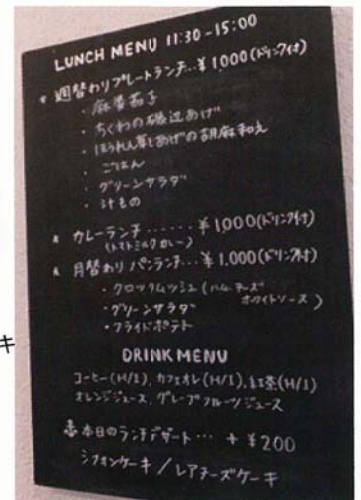 LUNCH MENU 11:30-15:00
* 週替わりプレートランチ…¥1000(ドリンク付)
・麻婆茄子
・ちくわの磯辺あげ
・ほうれん草としあげの胡麻和え
・ごはん
・グリーンサラダ
・汁もの
* カレーランチ……¥1,000(ドリンク付)
(トマトミルクカレー)
* 月替わりパンランチ…¥1,000(ドリンク付)
・クロックムッシュ(ハム、チーズ
ホワイトソース)
・グリーンサラダ
・フライドポテト
キ
DRINK MENU
コーヒー(H/I), カフェオレ(H/I), 紅茶(H/I)
オレンジジュース, グレープフルーツジュース
本日のランチデザート… + ¥200
シフォンケーキ / レアチーズケーキ